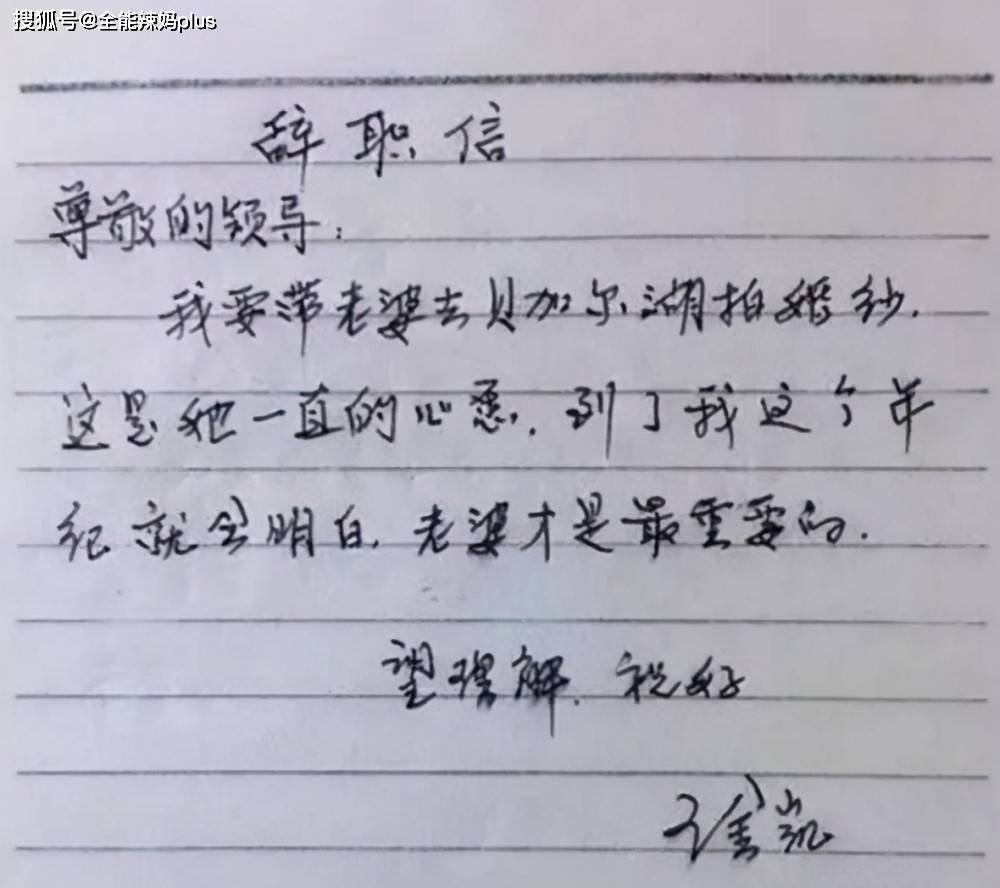 搜狐号@全能辣妈plus
辞职信
尊敬的领导:
我要带老婆去贝加尔湖拍婚纱.
这是她一直的心愿,到了我这个年
纪就会明白,老婆才是最重要的.
望理解.祝好